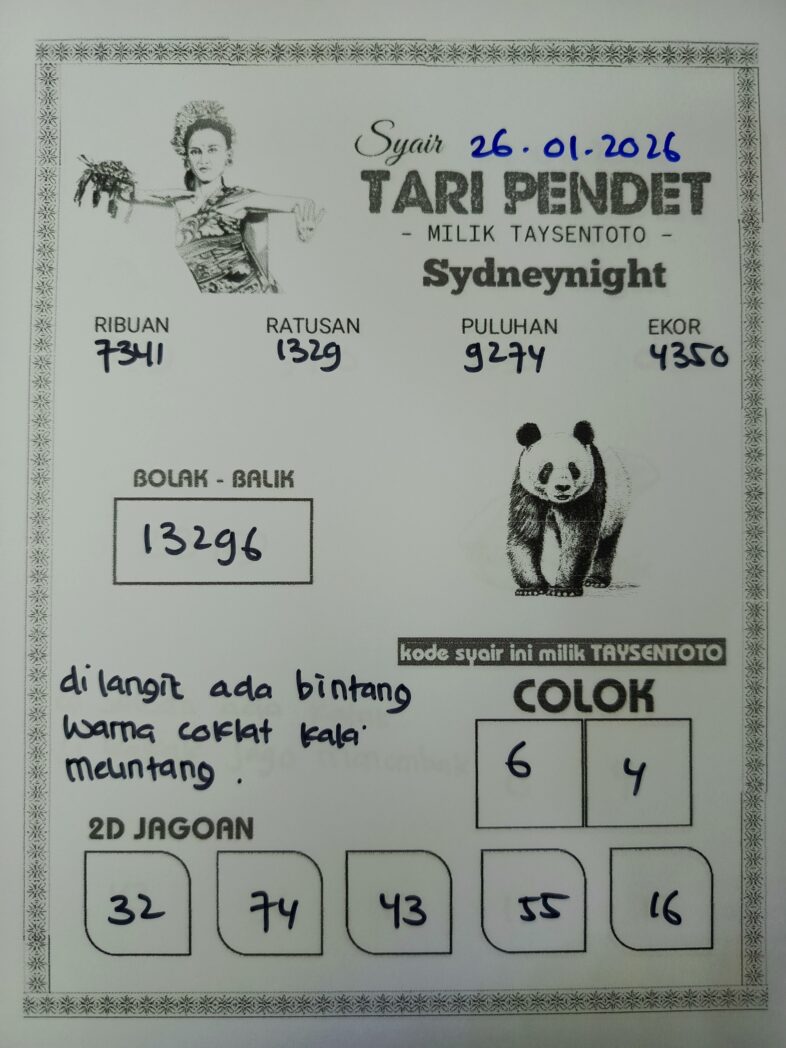 Syair 26.01.2026
TARI PENDET
- MILIK TAYSENTOTO -
Sydneynight
RIBUAN RATUSAN PULUHAN EKOR
7341 1329 9274 4350
BOLAK - BALIK
13296
kode syair ini milik TAYSENTOTO
di langit ada bintang
warna coklat kala
melintang .
COLOK
6 4
2D JAGOAN
32 74 43 55 16